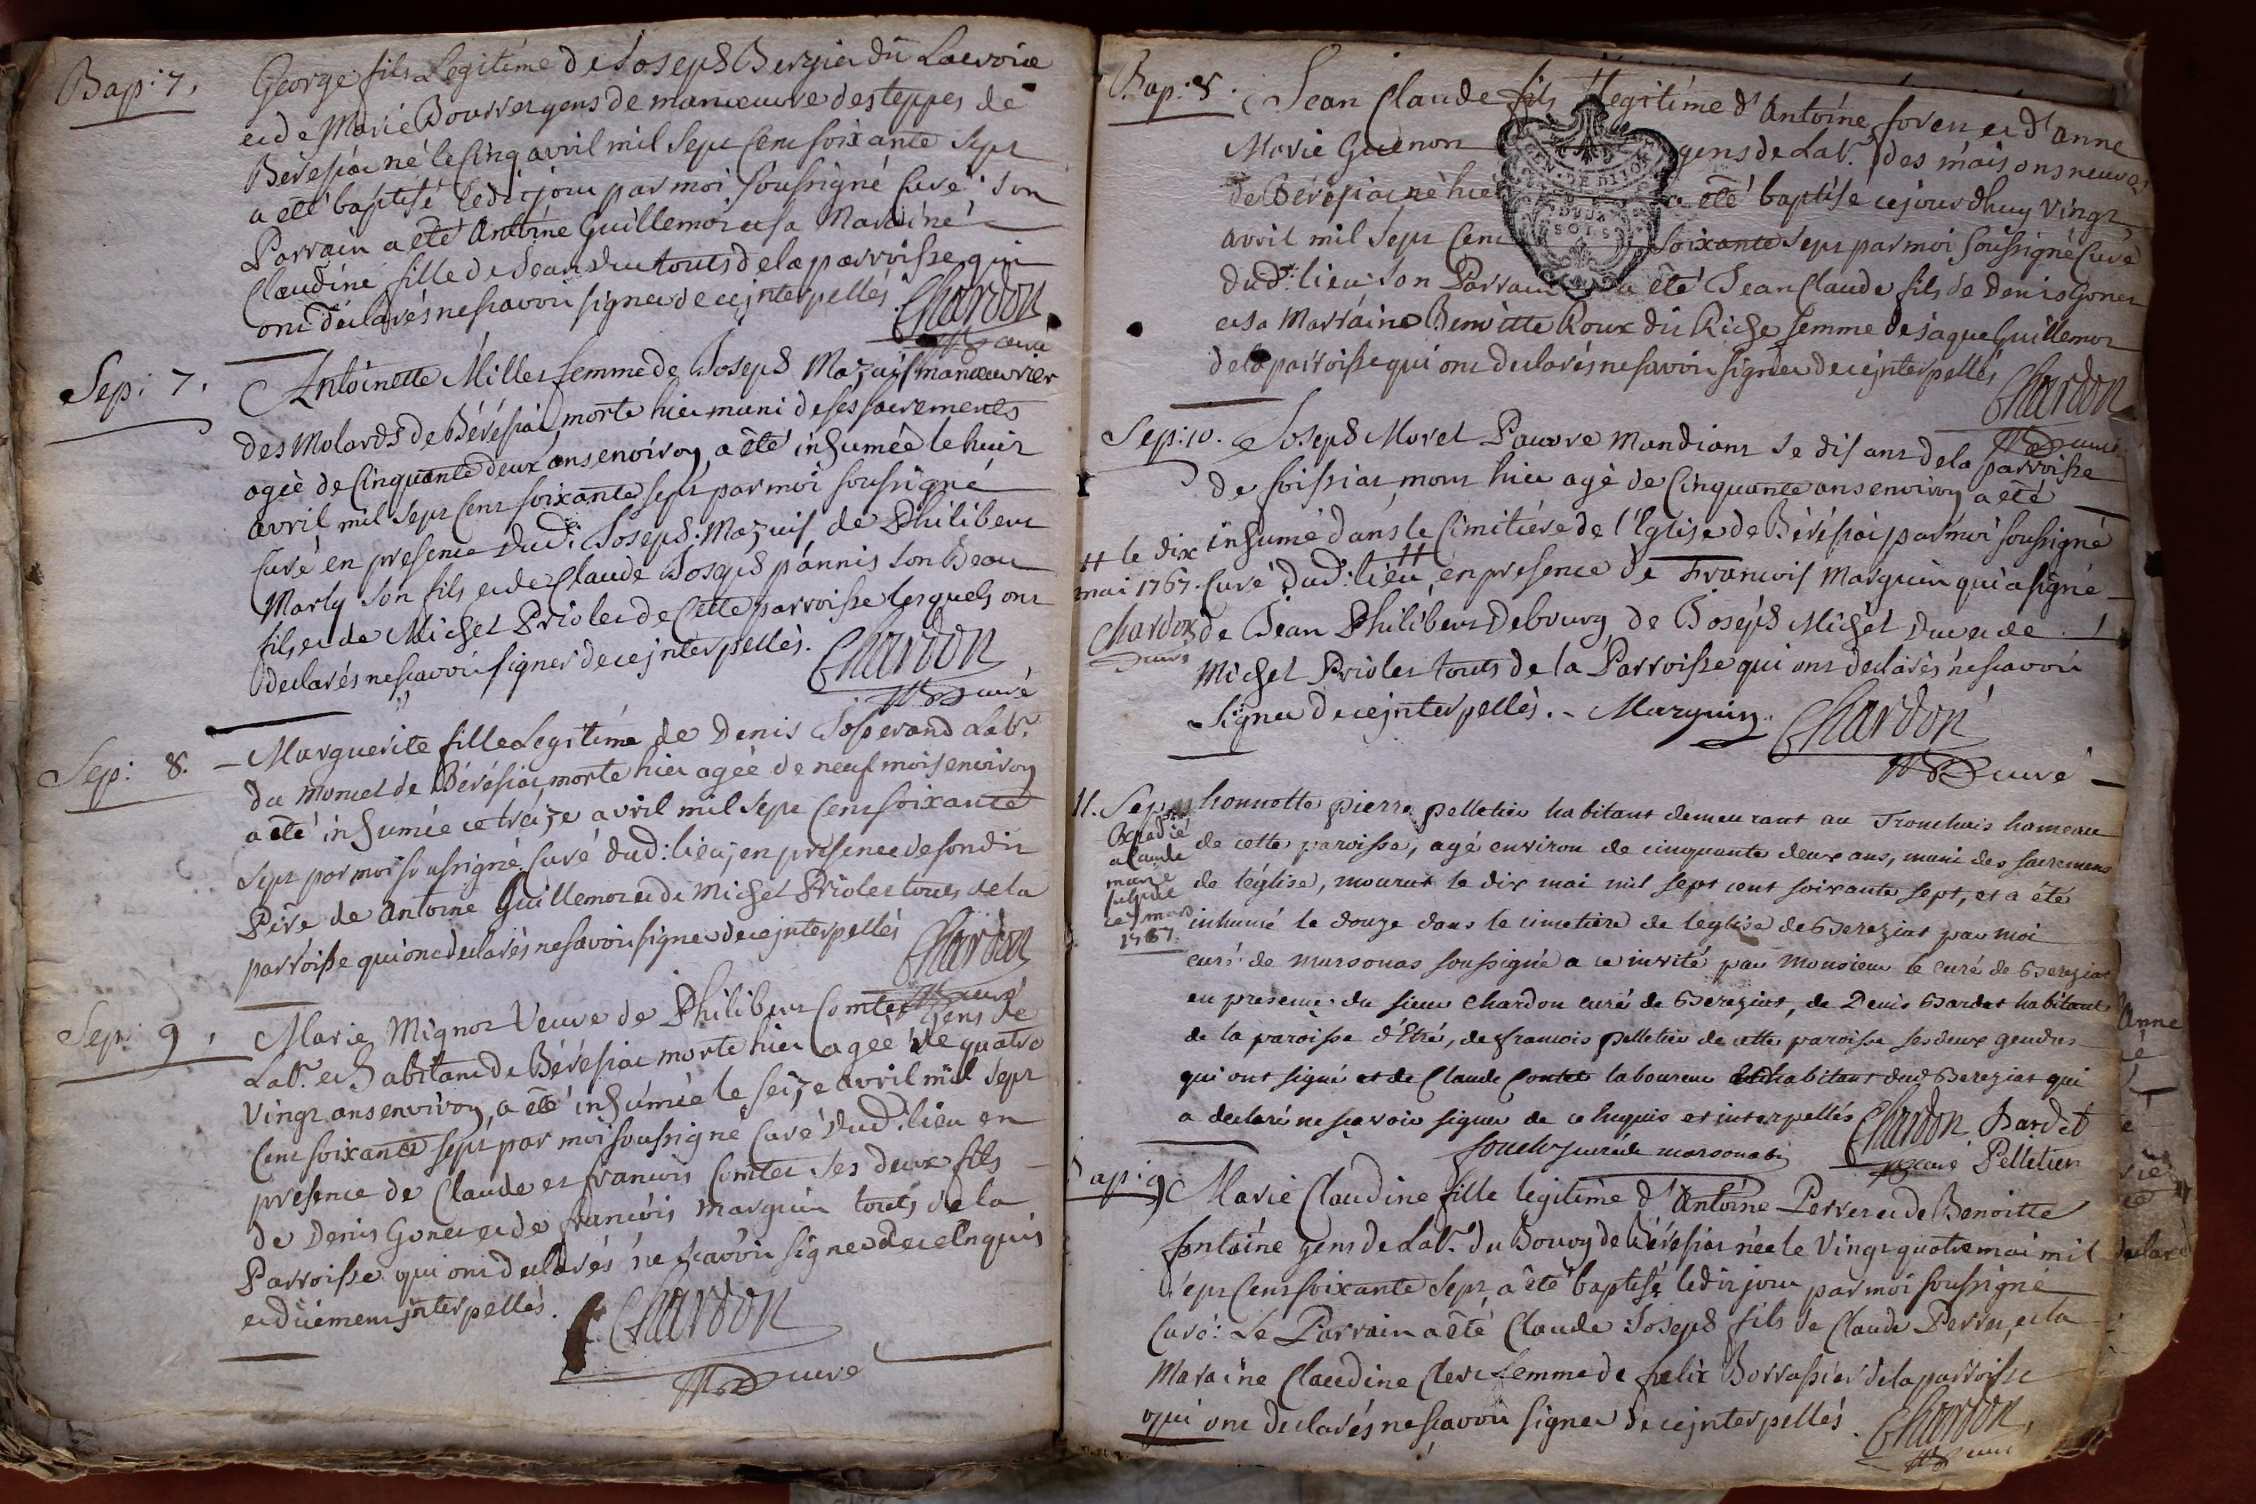 Bap: 7.
George fils Legitime de Joseph Berzier dit Lacroix
et de Marie Bourret gens de manoeuvre des teppes de
Béréssiat né le Cinq avril mil sept Cent soixante sept
a été baptisé ledit jour par moi soussigné Curé: son
Parrain a été Antoine Guillemot et sa Maraine
Claudine fille de Jean Duc touts de la parroisse qui
ont déclarés ne scavoir signer de ce interpellés. Chardon
curé
Sep: 7.
Antoinette Millet femme de Joseph Mazuit manoeuvrier
des Molards de Béréssiat morte hier muni de ses sacrements
agée de Cinquante deux ans environ, a été inhumée le huit
avril mil sept Cent soixante sept par moi soussigné
Curé en presence dud: Joseph Mazuit, de Philibert
Marly son fils et de Claude Joseph pannis son Beau
fils et de Michel Priolet de Cette parroisse lesquels ont
declarés ne scavoir signer de ce interpellés. Chardon
curé
Sep: 8.
Marguerite fille Legitime de Denis Josserand Lab.r
du Moncel de Béréssiat morte hier agée de neuf mois environ
a été inhumée ce treize avril mil sept Cent soixante
sept par moi soussigné Curé dud: lieu, en présence de son dit
Père de Antoine Guillemot et de Michel Priolet touts de la
parroisse qui ont declarés ne scavoir signer de ce interpellés Chardon
curé
Sep: 9.
Marie Mignot Veuve de Philibert Comtet gens de
Lab.r et habitant de Béréssiat morte hier agée de quatre
Vingt ans environ, a été inhumée le seize avril mil sept
Cent soixante sept par moi soussigné Curé dud: lieu en
presence de Claude et francois Comtet ses deux fils
de Denis Gonet et de francois Marguin touts de la
Parroisse qui ont declarés ne scavoir signer de ce Enquis
et duement interpellés.
Chardon
curé
Bap: 8.
Jean Claude fils Legitime d'Antoine foret et d'anne
Marie Guenon gens de Lab.r des maisons neuves
de Béréssiat né hier a été baptisé ce jourdhuy Vingt
avril mil Sept Cent soixante sept par moi soussigné Curé
dud: lieu: son Parrain a été Jean Claude fils de Denis Gonet
et sa Marraine Benoitte Roux dit Riche femme de Jaque Guillemot
de la parroisse qui ont declarés ne scavoir signer de ce interpellés
Chardon
curé
GEN. DE DIJON
DEUX
SOLS
Sep: 10.
Joseph Morel Pauvre Mandiant se disant de la parroisse
de foissiat mort hier agé de Cinquante ans environ a été
inhumé dans le Cimitiére de l'Eglise de Béréssiat par moi soussigné
Curé dud: lieu # en presence de Francois Marguin qui a signé
# le dix
mai 1767.
Chardon
curé
de Jean Philibert Debourg de Joseph Michel Duc et de
Michel Priolet touts de la Parroisse qui ont declarés ne scavoir
signer de ce interpellés. Marguin Chardon
curé
11. Sep
Expedié
a Claude
1767.
honnette pierre pelletier habitant demeurant au Tronchais hameau
de cette paroisse, agé environ de cinquante deux ans, muni des sacremens
de leglise, mourut le dix mai mil sept cent soixante sept, et a été
inhumé le douze dans le cimetiere de leglise de Bereziat par moi
curé de marsonas soussigné a ce invité par Monsieur le curé de Bereziat
en presence du sieur Chardon curé de Bereziat, de Denis Bardet habitant
de la paroisse d'Etré, de francois pelletier de cette paroisse ses deux gendres
qui ont signé et de Claude Contet laboureur habitant dud Bereziat qui
a declaré ne scavoir signer de ce enquis et interpellés Chardon Bardet
curé de marsonas curé Pelletier
Bap: 9
Marie Claudine fille legitime d'Antoine Perret et de Benoitte
fontaine gens de Lab.r du Bouvy de Béréssiat née le Vingt quatre mai mil
sept Cent soixante sept, a été baptisé ledit jour par moi soussigné
Curé: Le Parrain a été Claude Joseph fils de Claude Perret, et la
Maraine Claudine Clerc femme de felix Borrassier de la parroisse
qui ont declarés ne scavoir signer de ce interpellés. Chardon
curé